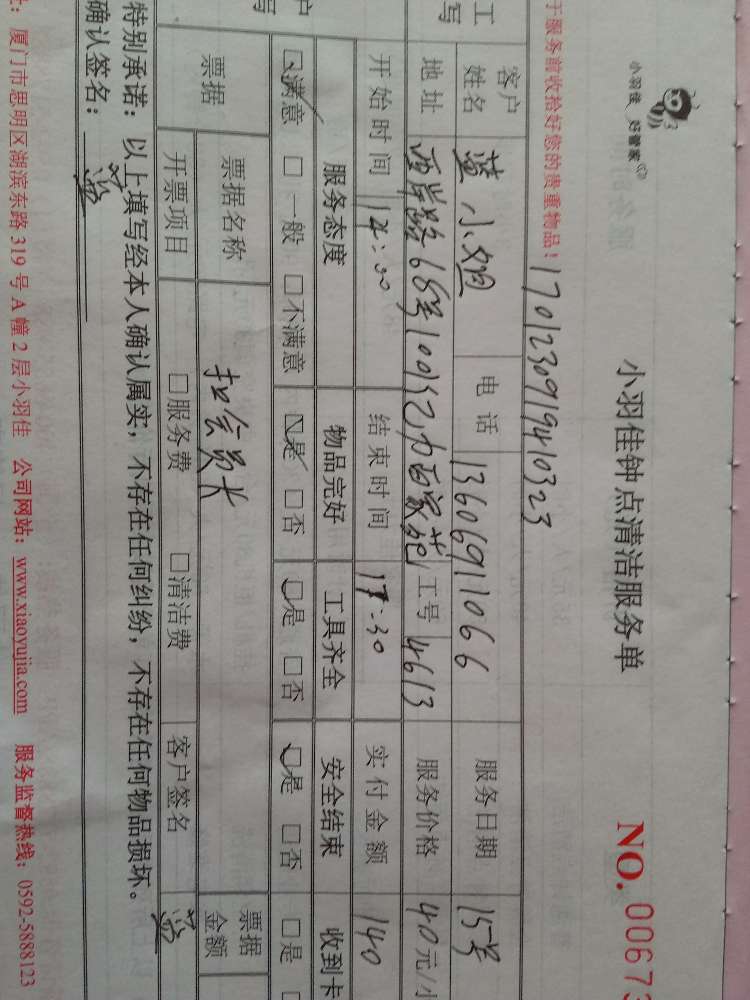 小羽佳 好管家
小羽佳钟点清洁服务单
NO. 00673
于服务前收拾好您的贵重物品！
1701230919410323
工
写
客户姓名 蓝小姐 电话 13606911066 服务日期 15号
地址 西岸路68号1001乙力百家苑 工号 4613 服务价格 40元/小
开始时间 14:00 结束时间 17:30 实付金额 140
户
写
服务态度 物品完好 工具齐全 安全结束 收到卡
☑满意 □一般 □不满意 ☑是 □否 ☑是 □否 ☑是 □否 □是
票据 票据名称 扣会员卡 票据金额
开票项目 □服务费 □清洁费 客户签名 蓝
特别承诺：以上填写经本人确认属实，不存在任何纠纷，不存在任何物品损坏。
确认签名：蓝
址：厦门市思明区湖滨东路319号A幢2层小羽佳 公司网站：www.xiaoyujia.com 服务监督热线：0592-5888123